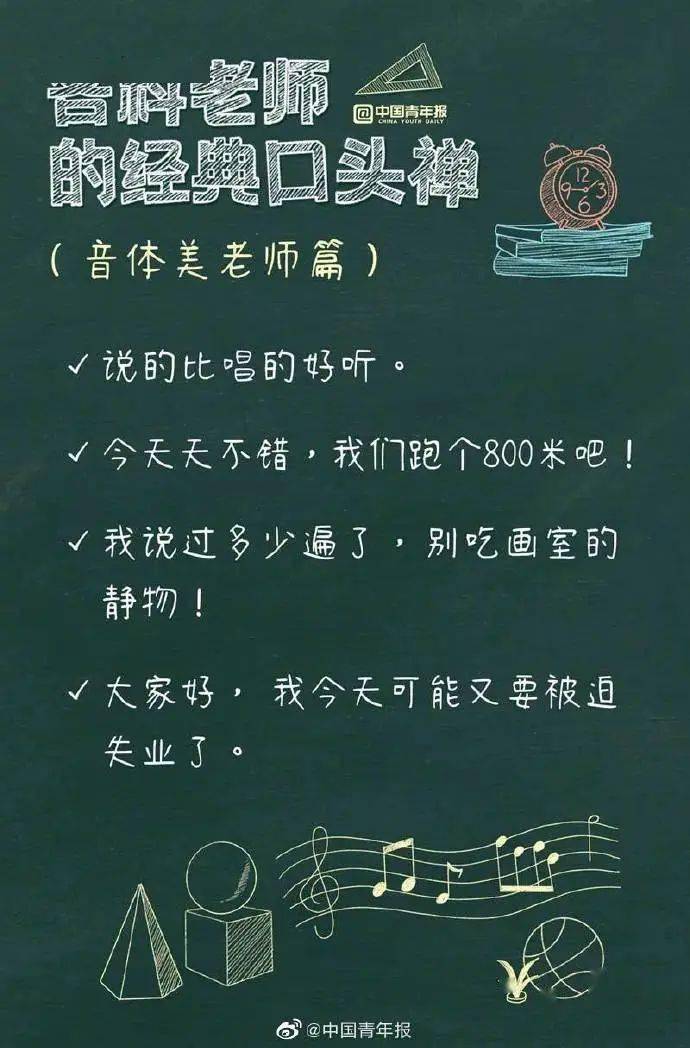 各科老师
@中国青年报
CHINA YOUTH DAILY
的经典口头禅
12
9 3
6
(音体美老师篇)
✓说的比唱的好听。
✓今天天不错，我们跑个800米吧！
✓我说过多少遍了，别吃画室的
静物！
✓大家好，我今天可能又要被迫
失业了。
@中国青年报